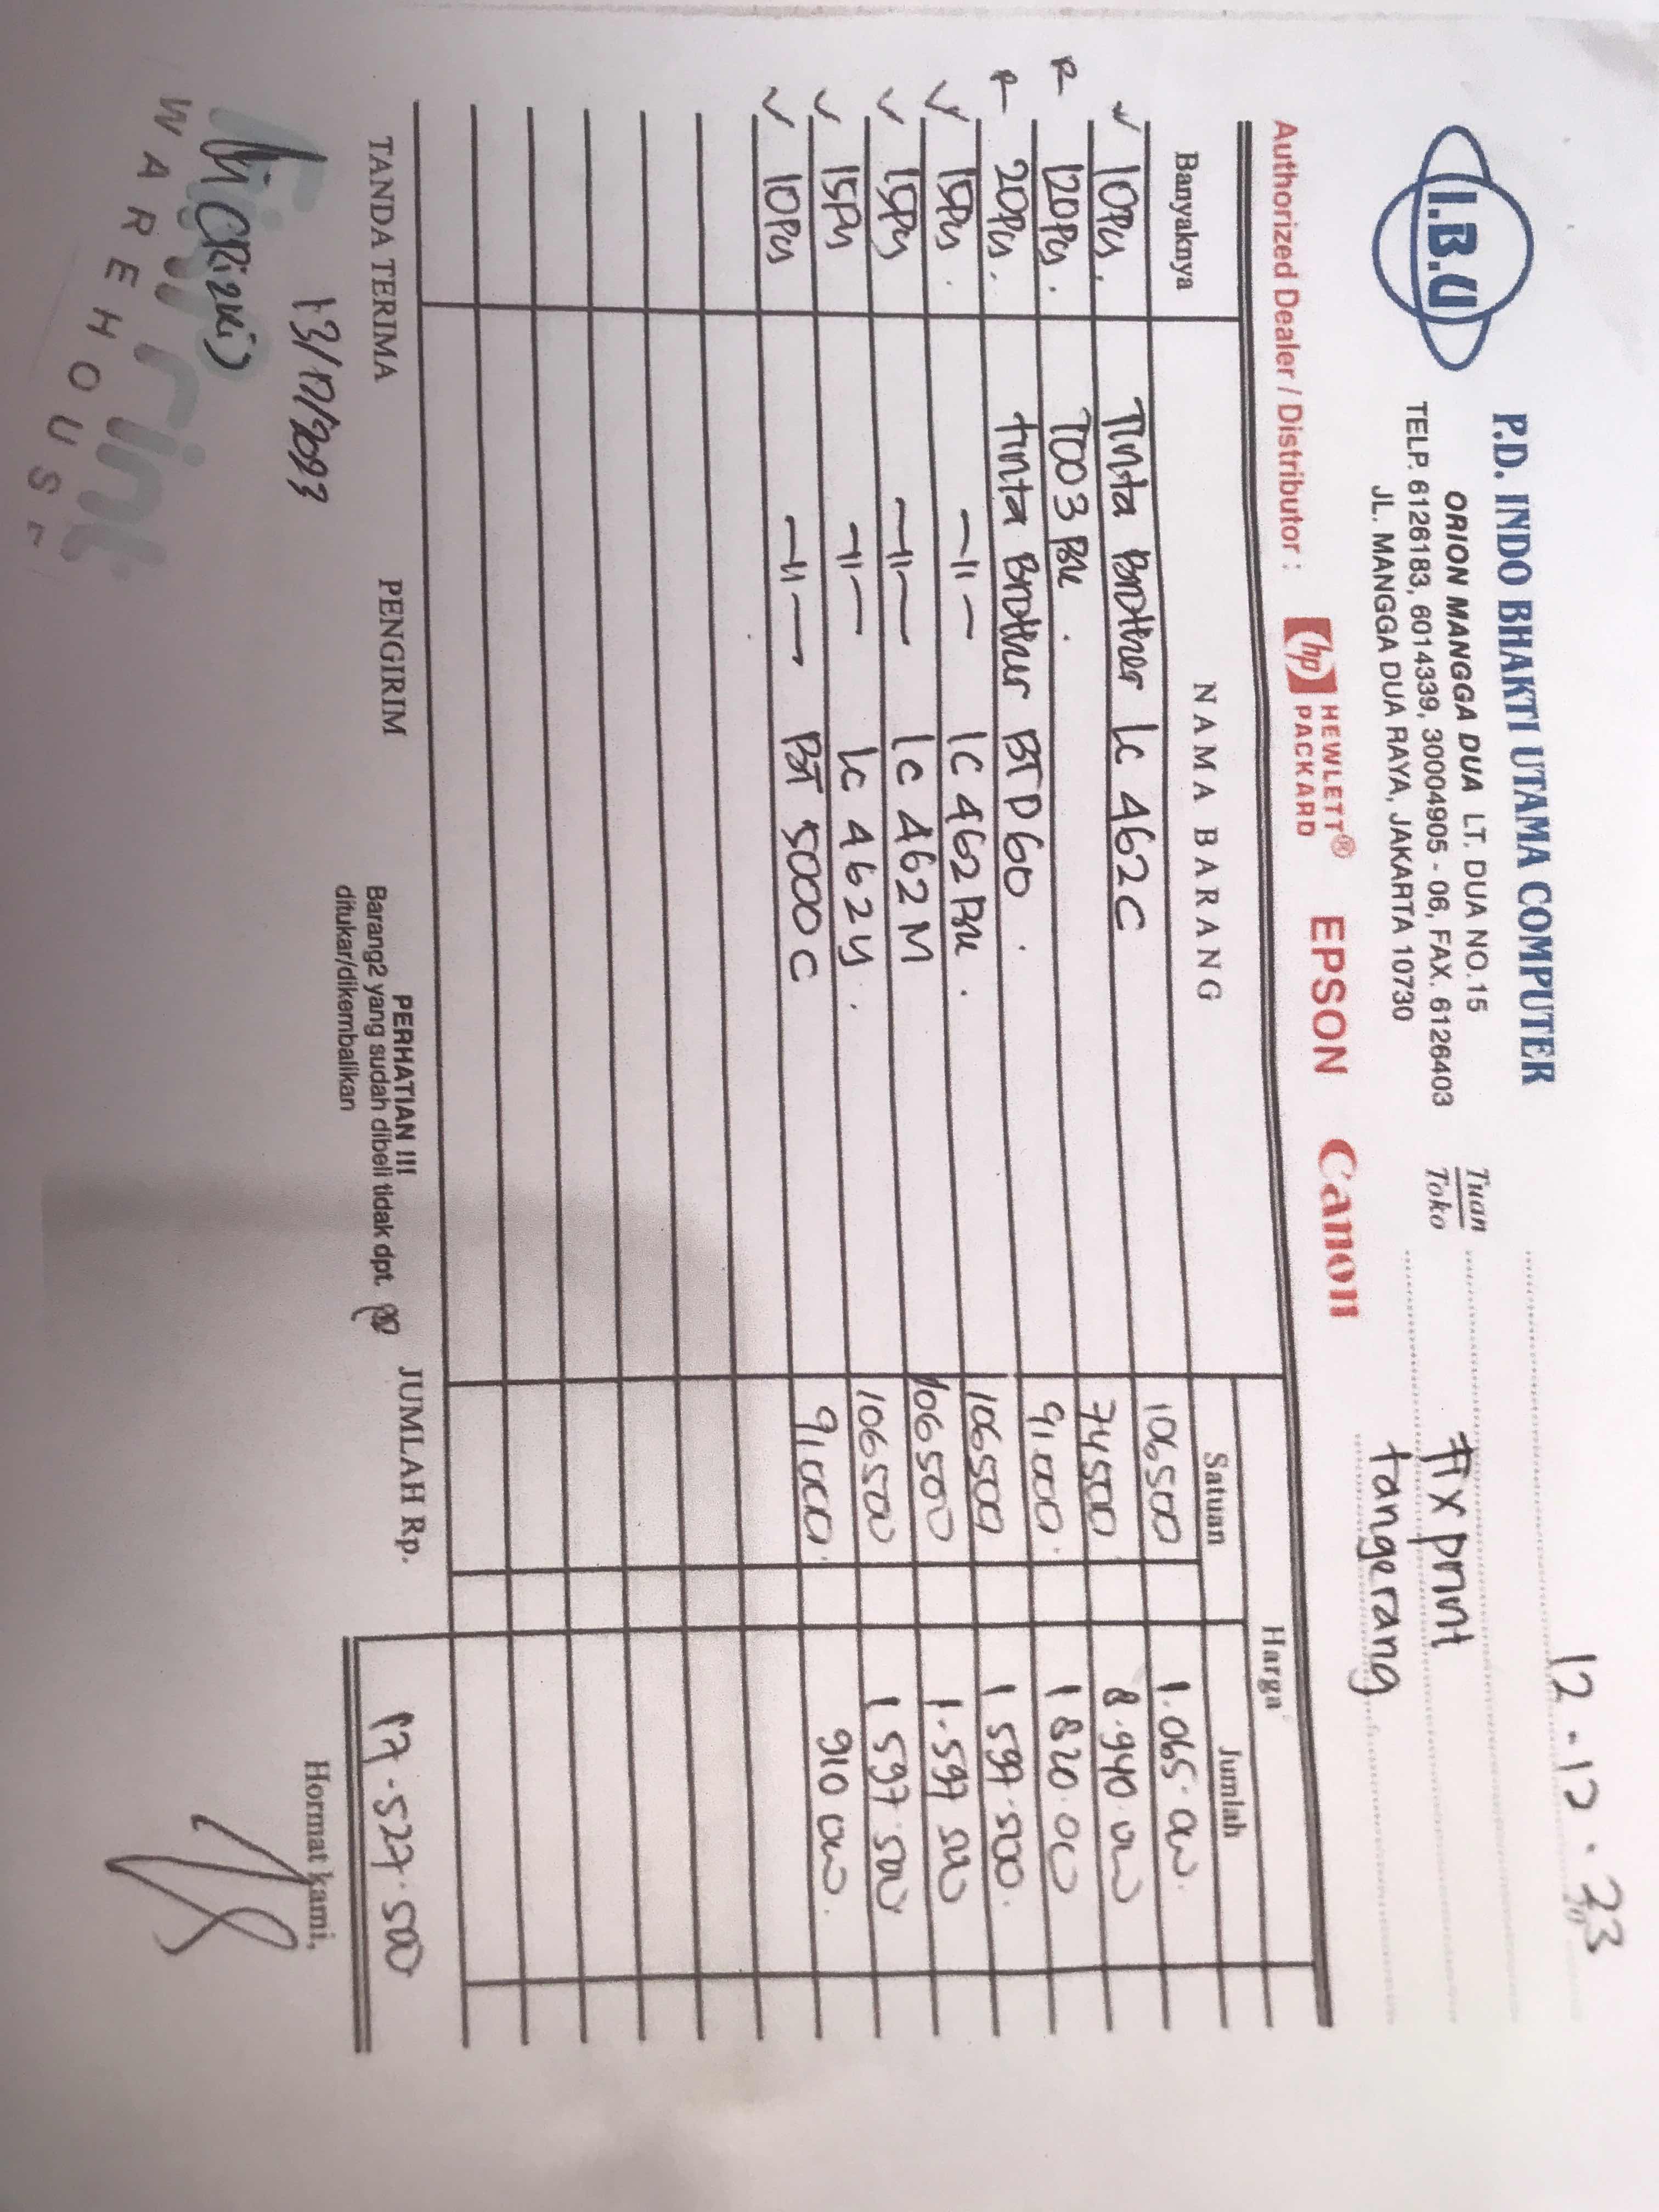 12 . 12 . 23
I.B.U
P.D. INDO BHAKTI UTAMA COMPUTER
ORION MANGGA DUA LT. DUA NO. 15
TELP. 6126183, 6014339, 30004905 - 06, FAX. 6126403
JL. MANGGA DUA RAYA, JAKARTA 10730
Tuan
Toko
Fix print
tangerang
Authorized Dealer / Distributor : hp HEWLETT® PACKARD EPSON Canon
Banyaknya NAMA BARANG Harga
Satuan Jumlah
✓ 10Pcs. Tinta Brother Lc 462C 106500 1.065.000.
R 120Pcs. T003 Bk. 74500 8.940.000
R 20Pcs. tinta Brother BTD60. 91.000. 1820.000
✓ 15Pcs. -11- LC 462 Bk. 106500 1597.500.
✓ 15Pcs -11- Lc 462 M 106500 1.597 500
✓ 15Pcs -11- Lc 462 y. 106500 1597.500
✓ 10Pcs -11- BT 5000 C 91.000. 910 000.
TANDA TERIMA PENGIRIM
PERHATIAN !!!
Barang2 yang sudah dibeli tidak dpt
ditukar/dikembalikan
JUMLAH Rp. 17.527.500
13/12/2023
Hormat kami,
(Rizki)
WAREHOUSE